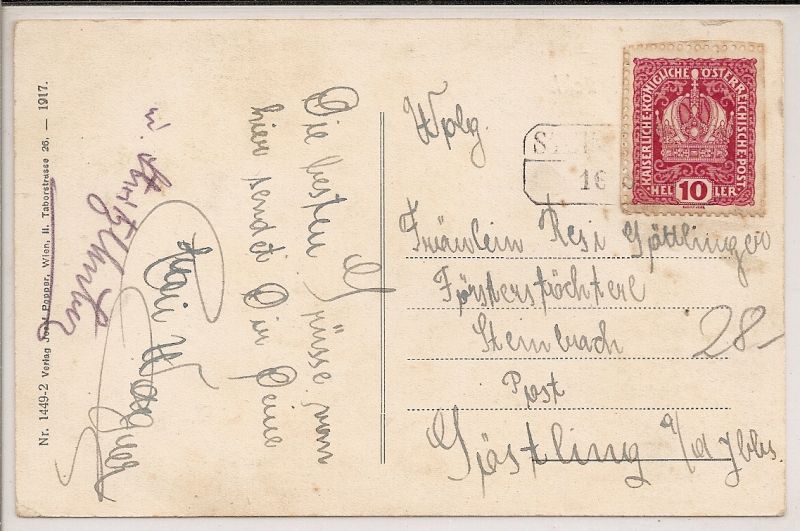 Nr. 1449-2 Verlag Josef Popper, Wien, II. Taborstrasse 26. — 1917.
Die besten Grüsse von
hier sendet Dir Deine
Wagner
u.
Wplg.
KAISERLICHE KÖNIGLICHE ÖSTERREICHISCHE POST
HELLER
10
16
Fräulein Resi Göttlinger
Försterstöchterl
Steinbach
28-
Post
Göstling a/d Ybbs.